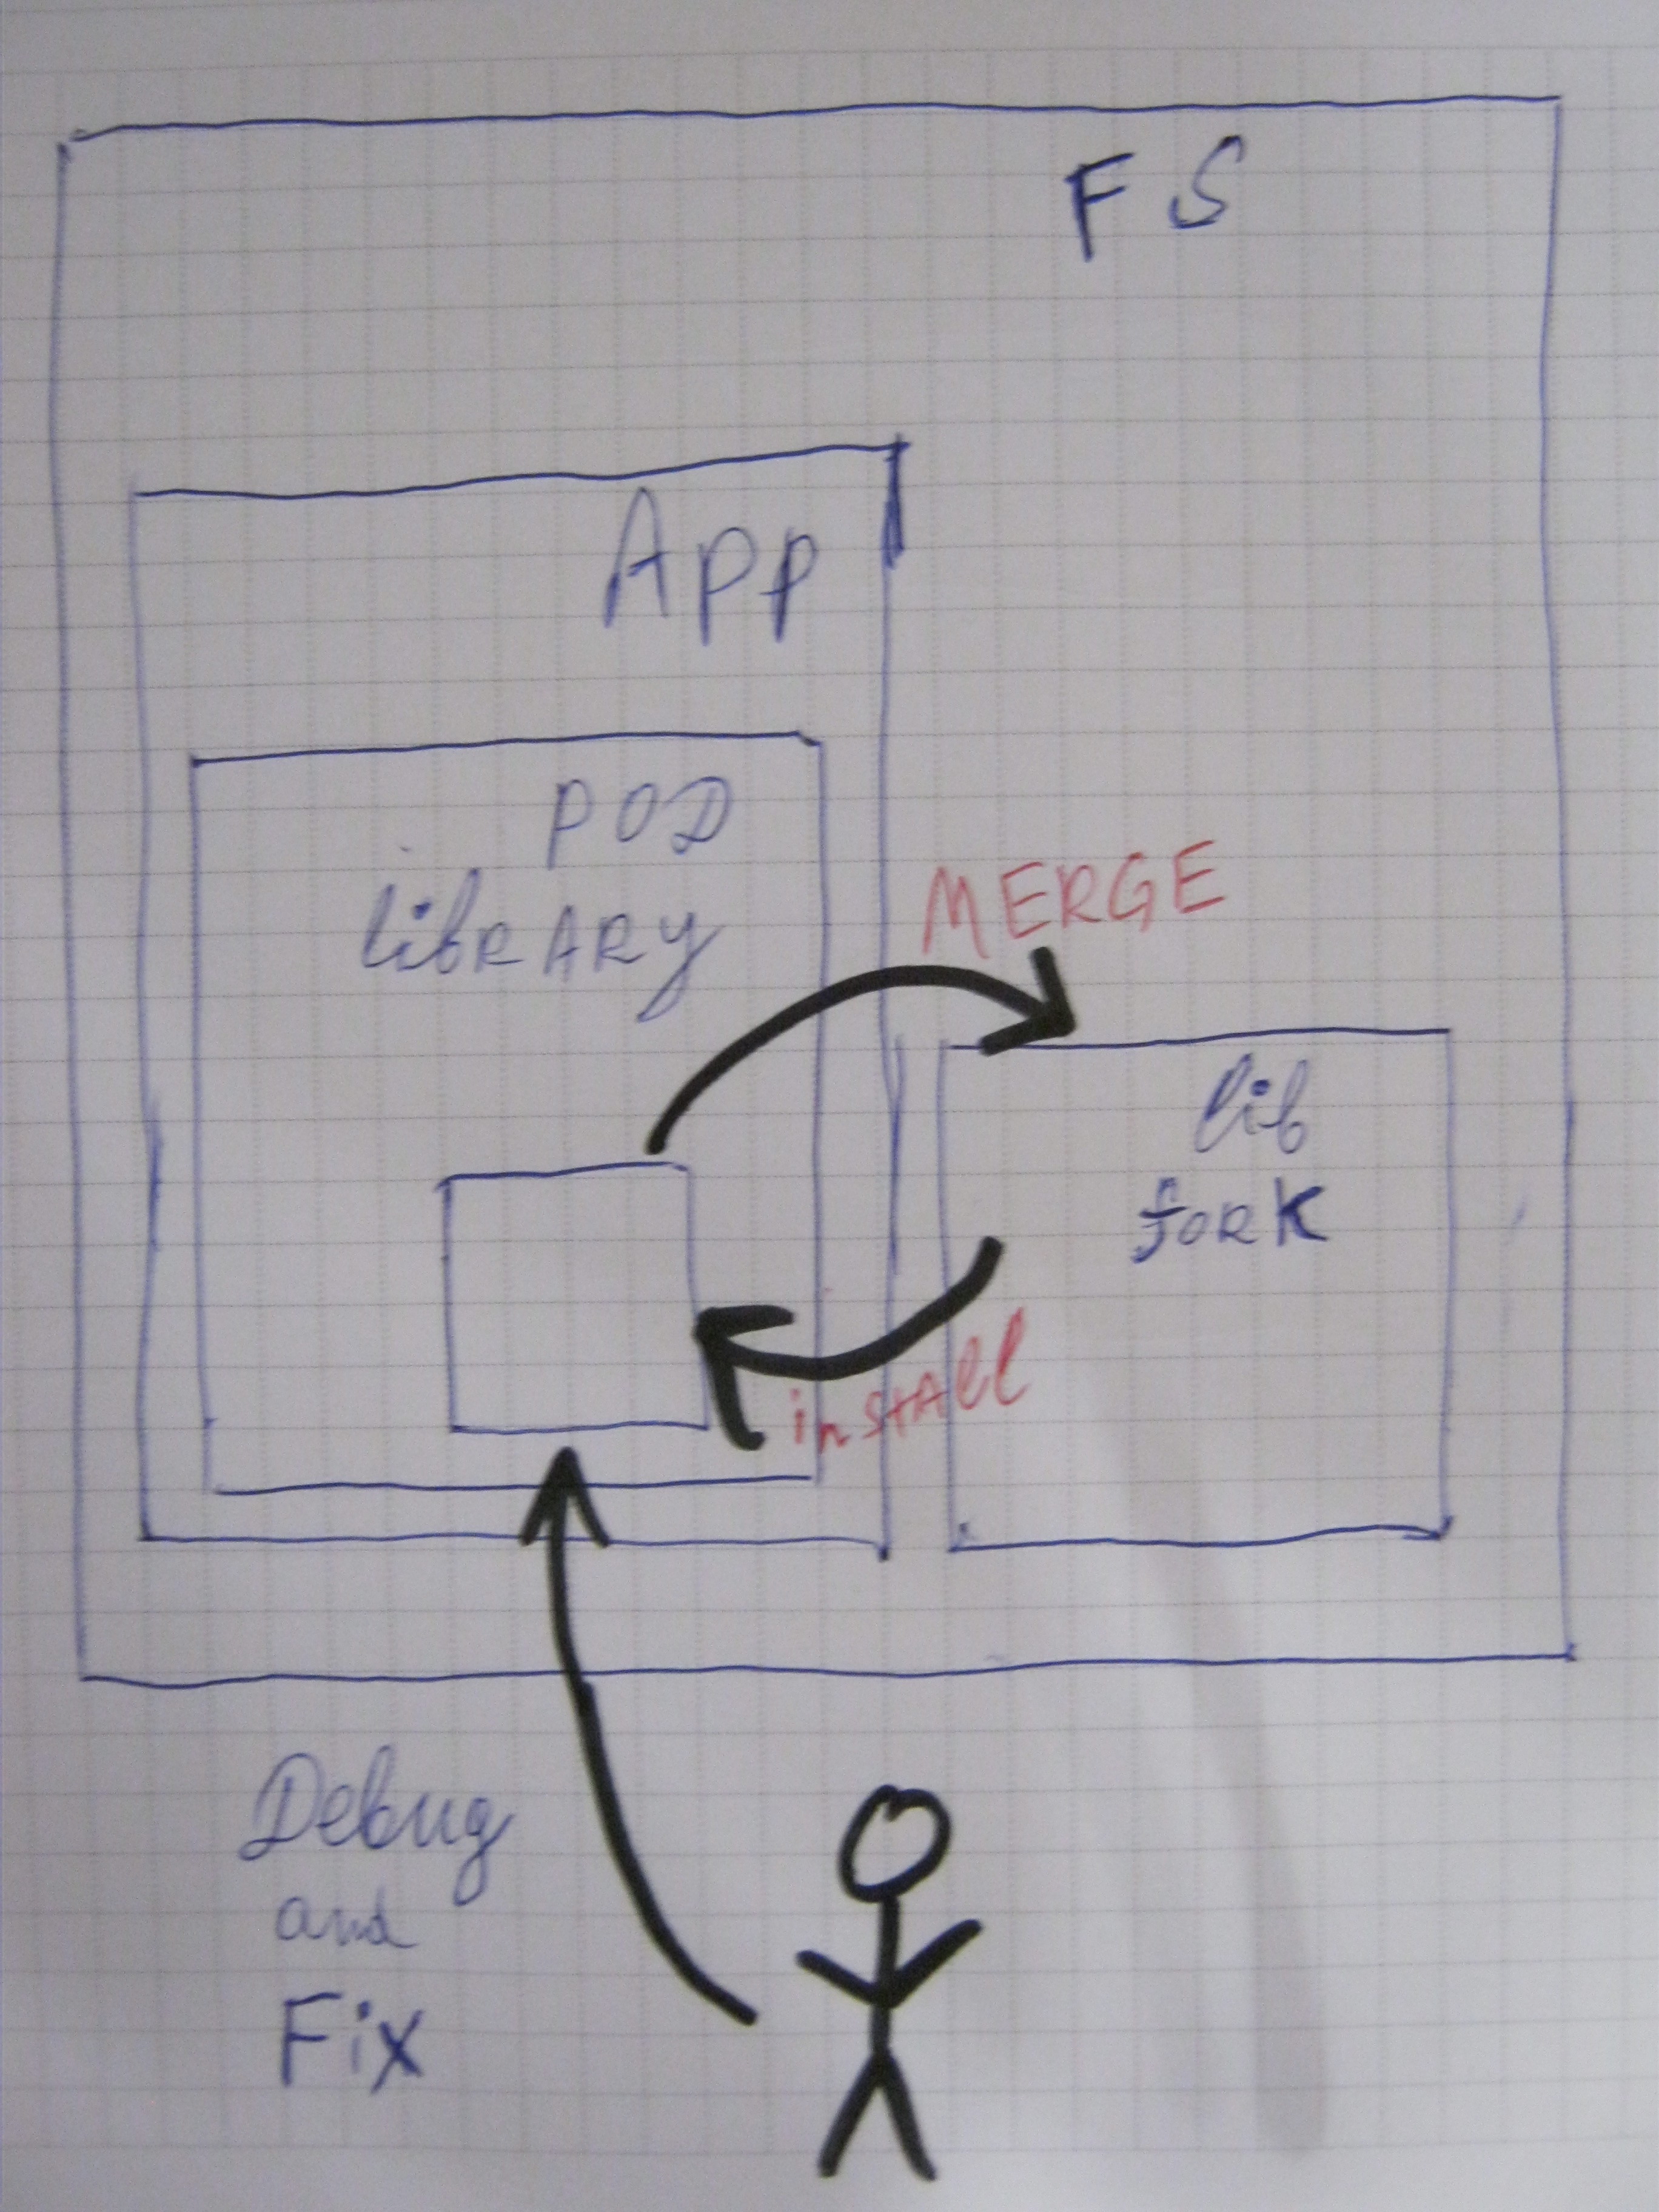 FS
App
POD
libRARY
MERGE
lib
fork
instAll
Debug
and
Fix